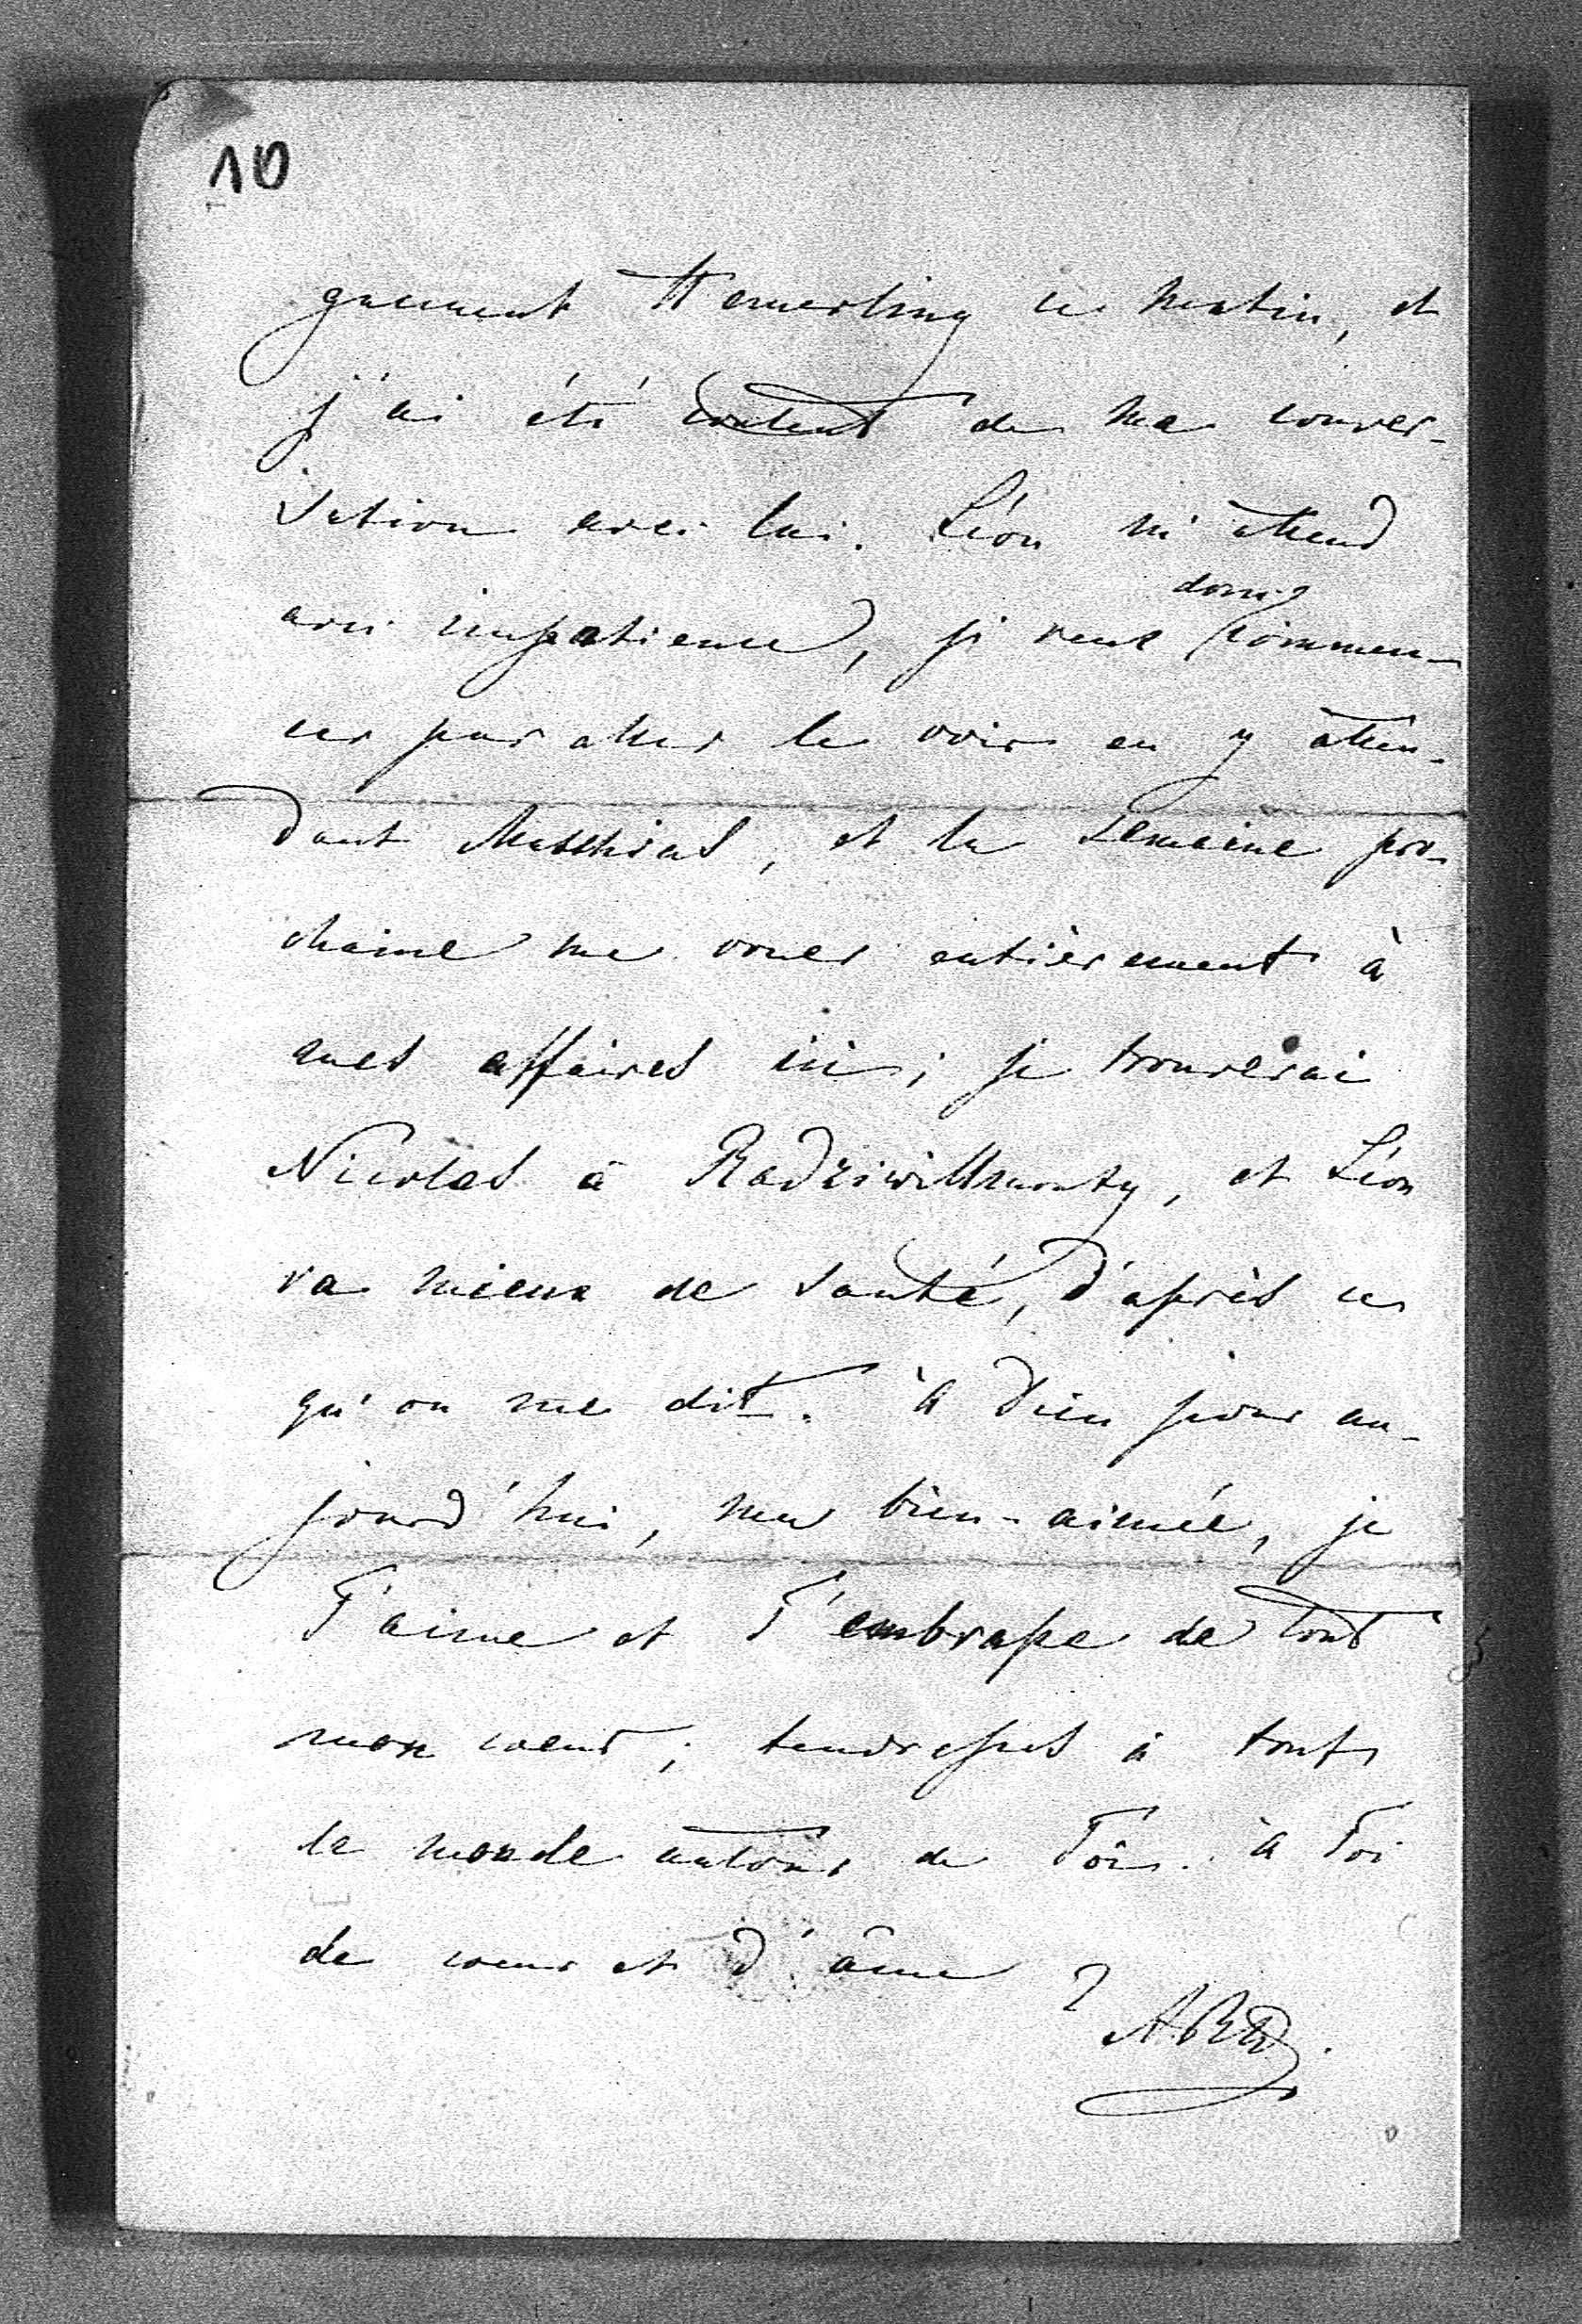 10
guement Hemerling ce matin, et
j'ai été content de ma conver-
sation avec lui. Léon m'attend
donc
avec impatience, je veux commen-
cer par aller le voir en y atten-
dant Matthias, et la semaine pro-
chaine me vouer entièrement à
mes affaires ici; je trouverai
Nicolas à Radziwillmonty, et Léon
va mieux de santé, d'après ce
qu'on me dit. à Dieu pour au-
jourd'hui, ma bien-aimée, je
T'aime et T'embrasse de tout
mon coeur; tendresses à tout
le monde autour de Toi. à Toi
de coeur et d'âme